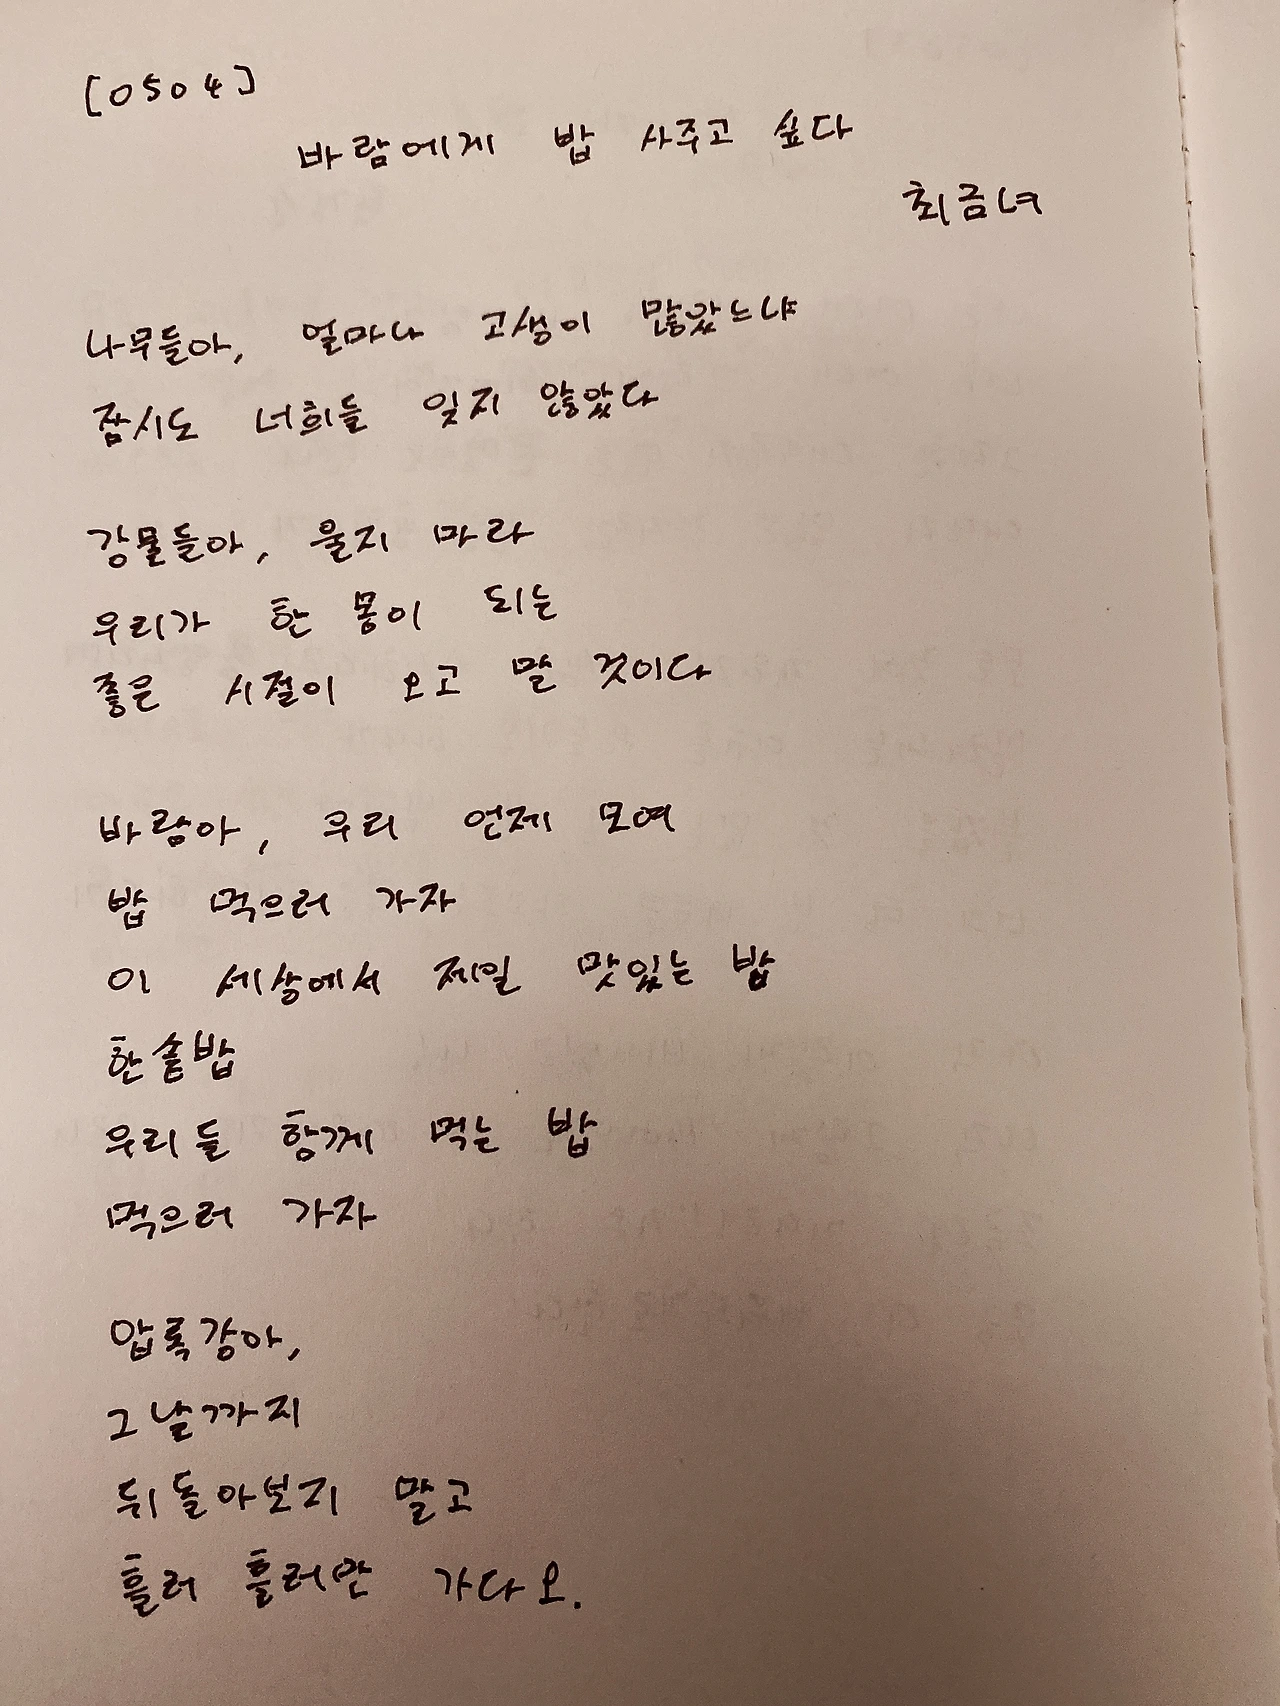 [0504]
바람에게 밥 사주고 싶다
최금녀
나무들아, 얼마나 고생이 많았느냐
잠시도 너희들 잊지 않았다
강물들아, 울지 마라
우리가 한 몸이 되는
좋은 시절이 오고 말 것이다
바람아, 우리 언제 모여
밥 먹으러 가자
이 세상에서 제일 맛있는 밥
한솥밥
우리들 함께 먹는 밥
먹으러 가자
압록강아,
그날까지
뒤돌아보지 말고
흘러 흘러만 가다오.